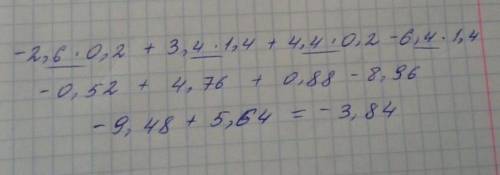 -2,6 · 0,2 + 3,4 · 1,4 + 4,4 · 0,2 - 6,4 · 1,4
-0,52 + 4,76 + 0,88 - 8,96
-9,48 + 5,64 = -3,84